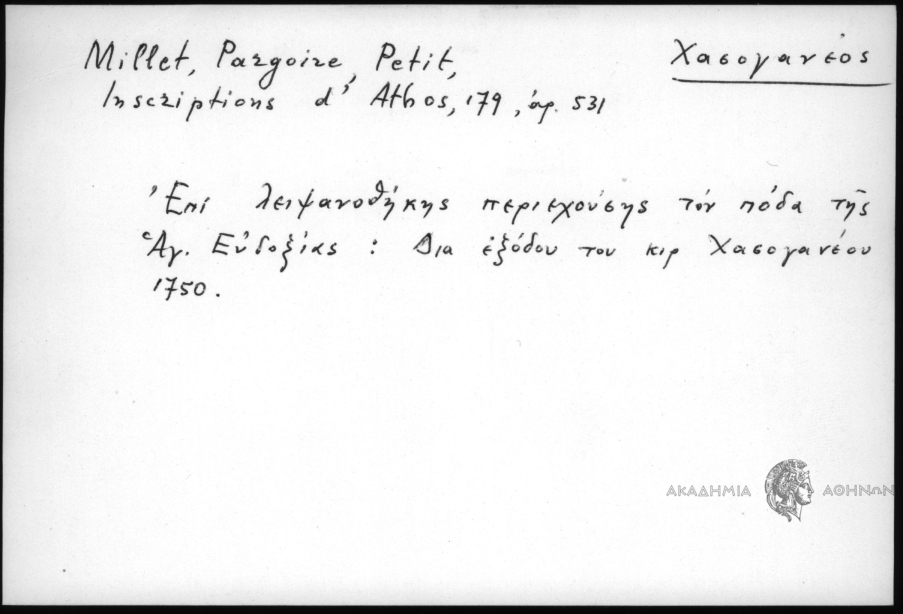 Millet, Pargoire, Petit, Χασογανέος
Inscriptions d' Athos, 179, ἀρ. 531
Ἐπί λειψανοθήκης περιεχούσης τόν πόδα τῆς
Ἁγ. Εὐδοξίας : Δια ἐξόδου του κιρ Χασογανέου
1750.
ΑΚΑΔΗΜΙΑ ΑΘΗΝΩΝ